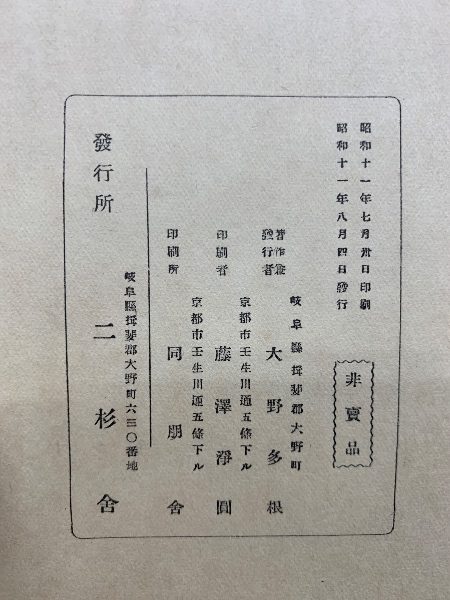 昭和十一年七月卅日印刷
昭和十一年八月四日發行
非賣品
岐阜縣揖斐郡大野町
著作兼
發行者 大野多根
京都市壬生川通五條下ル
印刷者 藤澤淨圓
京都市壬生川通五條下ル
印刷所 同朋舍
岐阜縣揖斐郡大野町六三〇番地
發行所 二杉舍